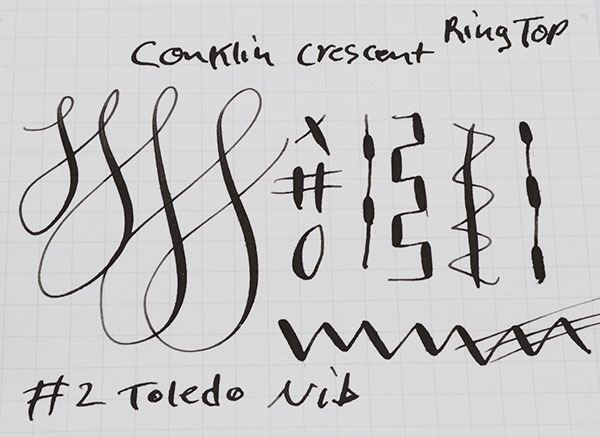 Conklin Crescent RingTop
X
#
O
#2 Toledo Nib